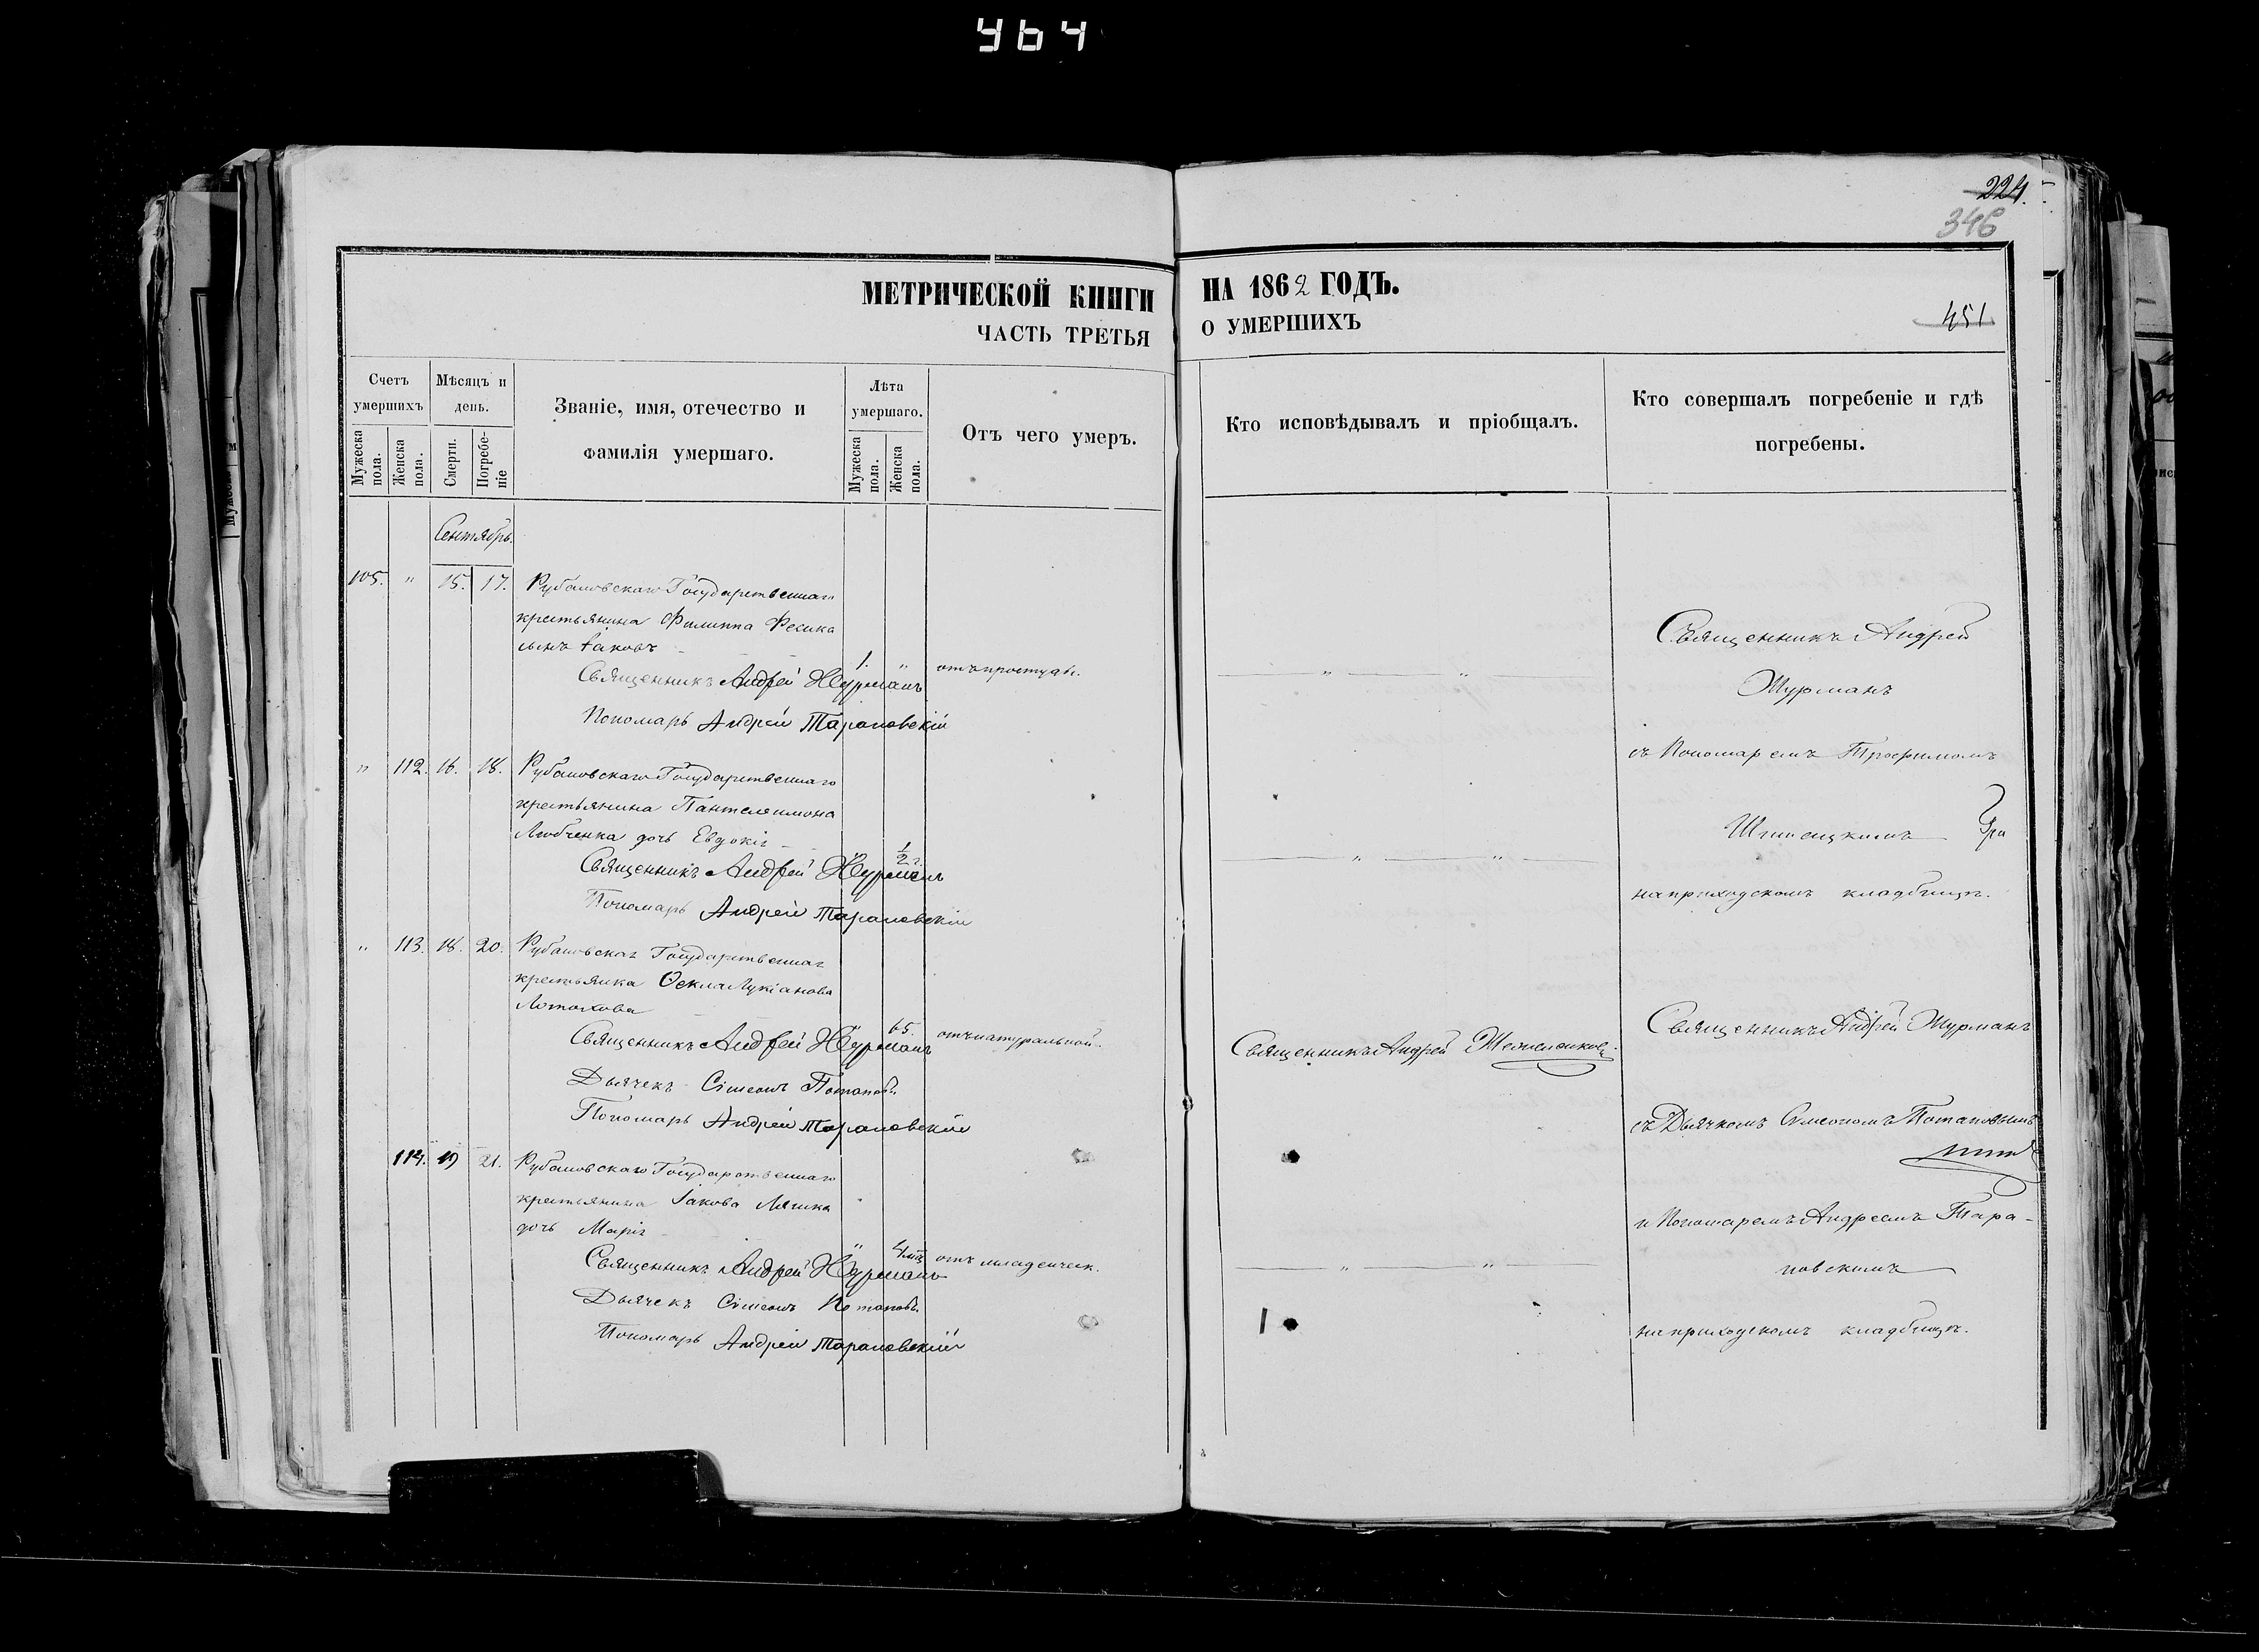 464
224.
346
МЕТРИЧЕСКОЙ КНИГИ НА 1862 ГОДЪ.
ЧАСТЬ ТРЕТЬЯ О УМЕРШИХЪ
451
Счетъ умершихъ
Мѣсяцъ и день.
Званіе, имя, отечество и фамилія умершаго.
Лѣта умершаго.
Отъ чего умеръ.
Кто исповѣдывалъ и пріобщалъ.
Кто совершалъ погребеніе и гдѣ погребены.
Мужеска пола.
Женска пола.
Смерти.
Погребеніе
Мужеска пола.
Женска пола.
Сентябрь.
105. " 15. 17. Рубановскаго Государственнаго
крестьянина Филиппа Фесика
сынъ Іаковъ
1. " отъ простуды.
Священникъ Андрей Журманъ
Пономарь Андрей Тарановскій
Священникъ Андрей
Журманъ
съ Пономаремъ Трофимомъ
на приходскомъ кладбищѣ.
" 112. 16. 18. Рубановскаго Государственнаго
крестьянина Пантелеимона
Любченка дочь Евдокія
1/2 г.
Священникъ Андрей Журманъ
Пономарь Андрей Тарановскій
" 113. 18. 20. Рубановская Государственная
крестьянка Ѳекла Лукіанова
65. отъ натуральной.
Священникъ Андрей Журманъ
Дьячекъ Сімеонъ Потаповъ.
Пономарь Андрей Тарановскій
Священникъ Андрей
Священникъ Андрей Журманъ
съ Дьячкомъ Симеономъ Потаповымъ
и Пономаремъ Андреемъ Тара-
новскимъ
на приходскомъ кладбищѣ.
114. 19 21. Рубановскаго Государственнаго
крестьянина Іакова
дочь Марія
" 4 мц. отъ младенческ.
Священникъ Андрей Журманъ
Дьячекъ Сімеонъ Потаповъ.
Пономарь Андрей Тарановскій